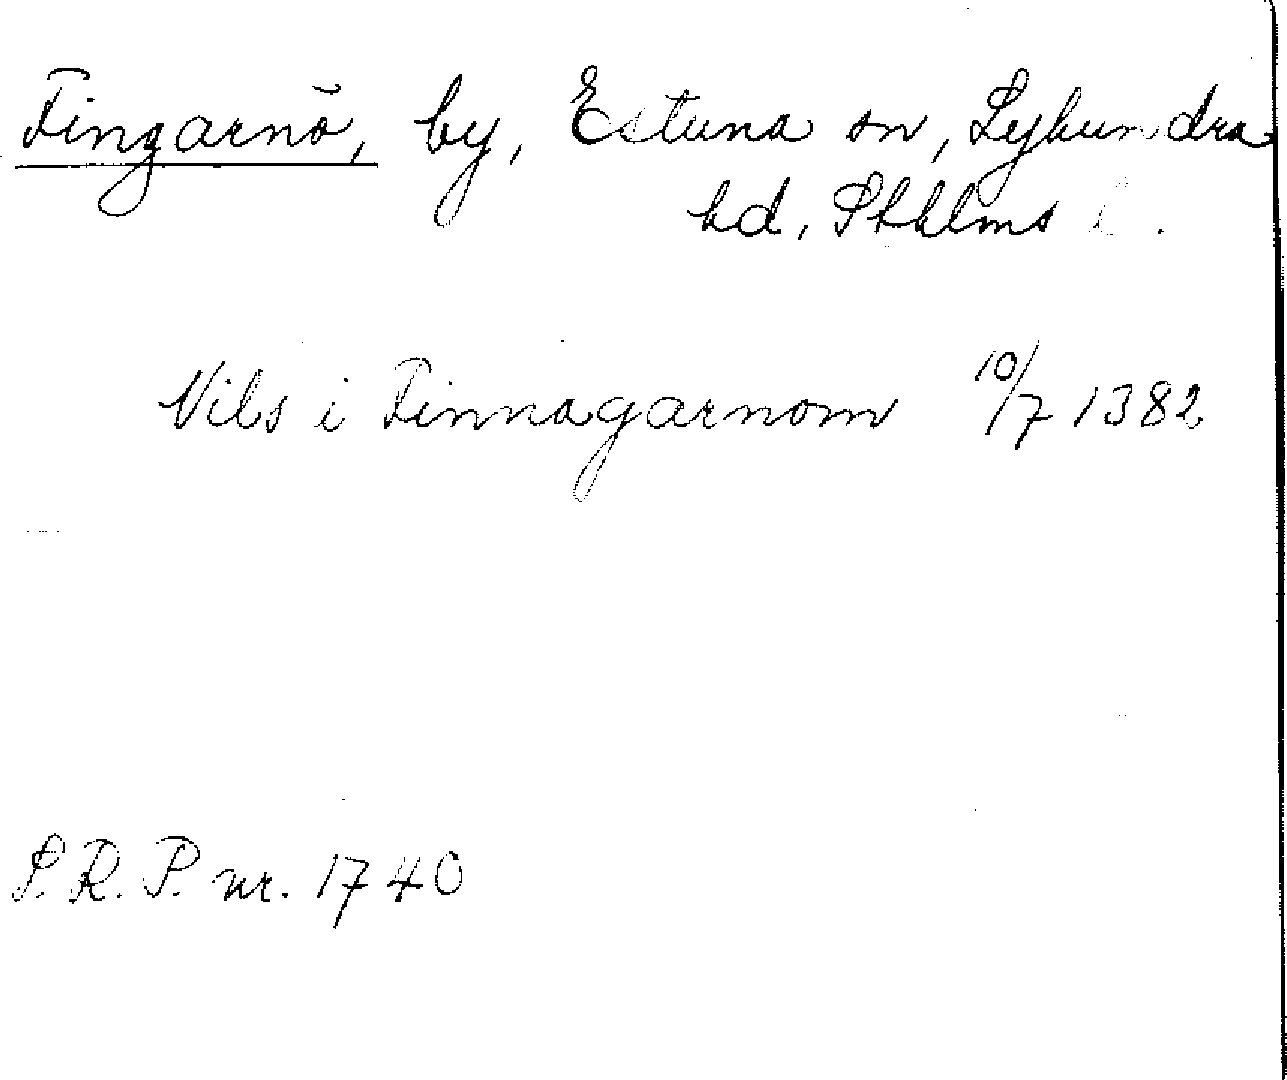 Fingarnö, by, Estuna sn, Lyhundra
hd, Sthlms l.
Nils i Finnagarnom 10/7 1382
S.R.P. nr. 1740